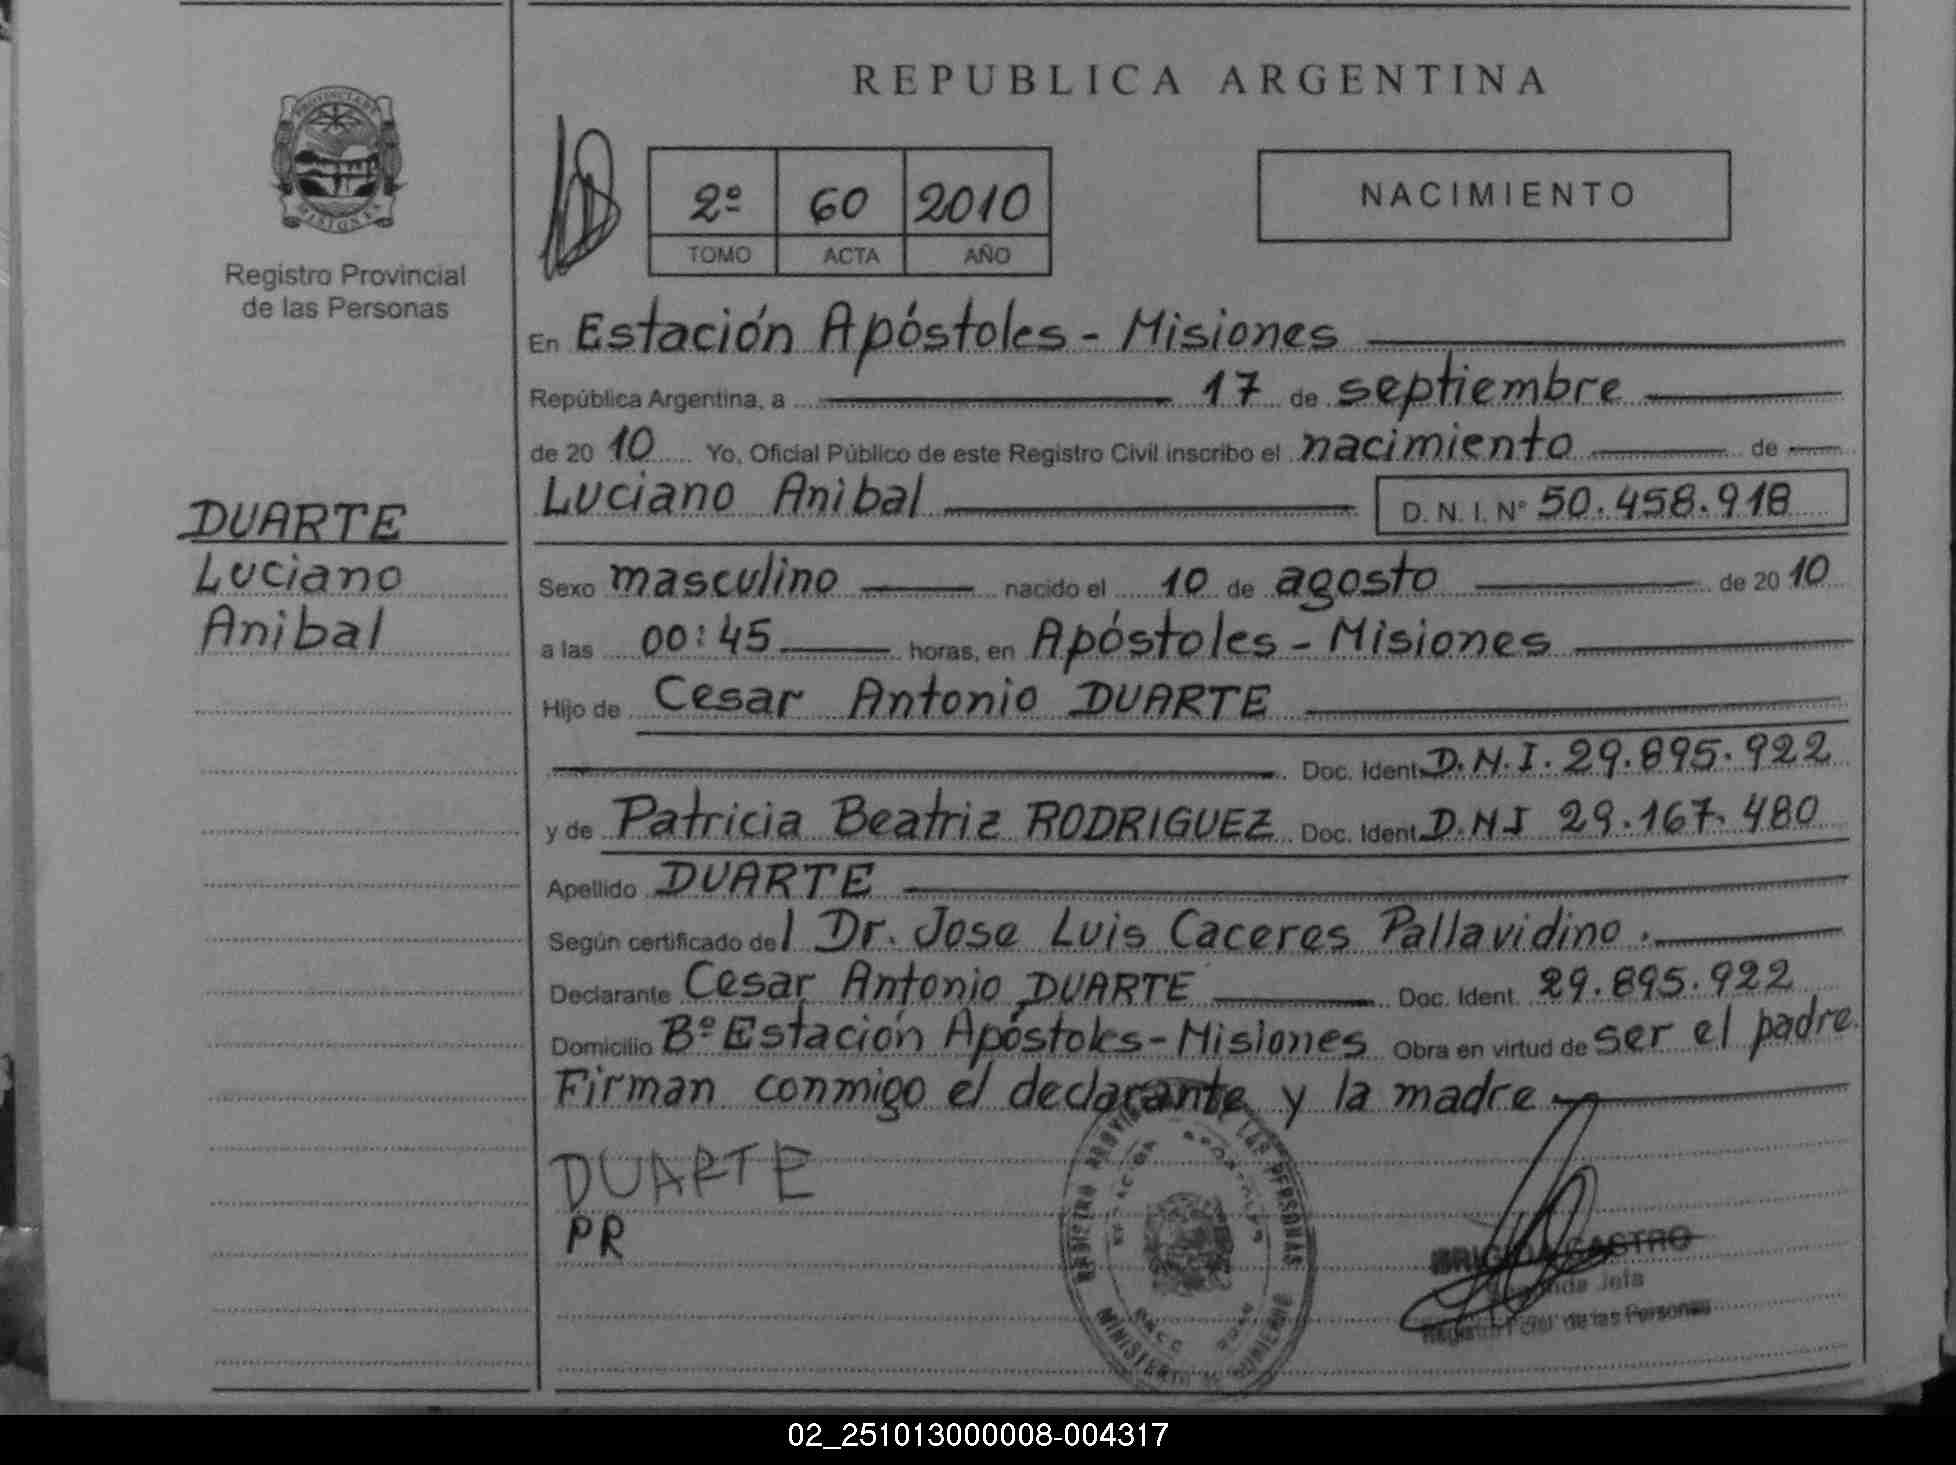 REPUBLICA ARGENTINA
PROVINCIA DE
MISIONES
Registro Provincial
de las Personas
2º 60 2010
TOMO ACTA AÑO
NACIMIENTO
En Estación Apóstoles - Misiones
República Argentina, a 17 de septiembre
de 20 10 Yo, Oficial Público de este Registro Civil inscribo el nacimiento de
Luciano Anibal D. N. I. Nº 50.458.918
DUARTE
Luciano
Anibal
Sexo masculino nacido el 10 de agosto de 20 10
a las 00:45 horas, en Apóstoles - Misiones
Hijo de Cesar Antonio DUARTE
Doc. Ident. D.N.I. 29.895.922
y de Patricia Beatriz RODRIGUEZ Doc. Ident. D.N.I 29.167.480
Apellido DUARTE
Según certificado del Dr. Jose Luis Caceres Pallavidino.
Declarante Cesar Antonio DUARTE Doc. Ident. 29.895.922
Domicilio Bº Estación Apóstoles - Misiones Obra en virtud de ser el padre.
Firman conmigo el declarante y la madre
DUARTE
PR
REGISTRO PROVINCIAL DE LAS PERSONAS
MINISTERIO DE GOBIERNO
BRIGIDA CASTRO
Jefa
Registro Pcial. de las Personas
02_251013000008-004317